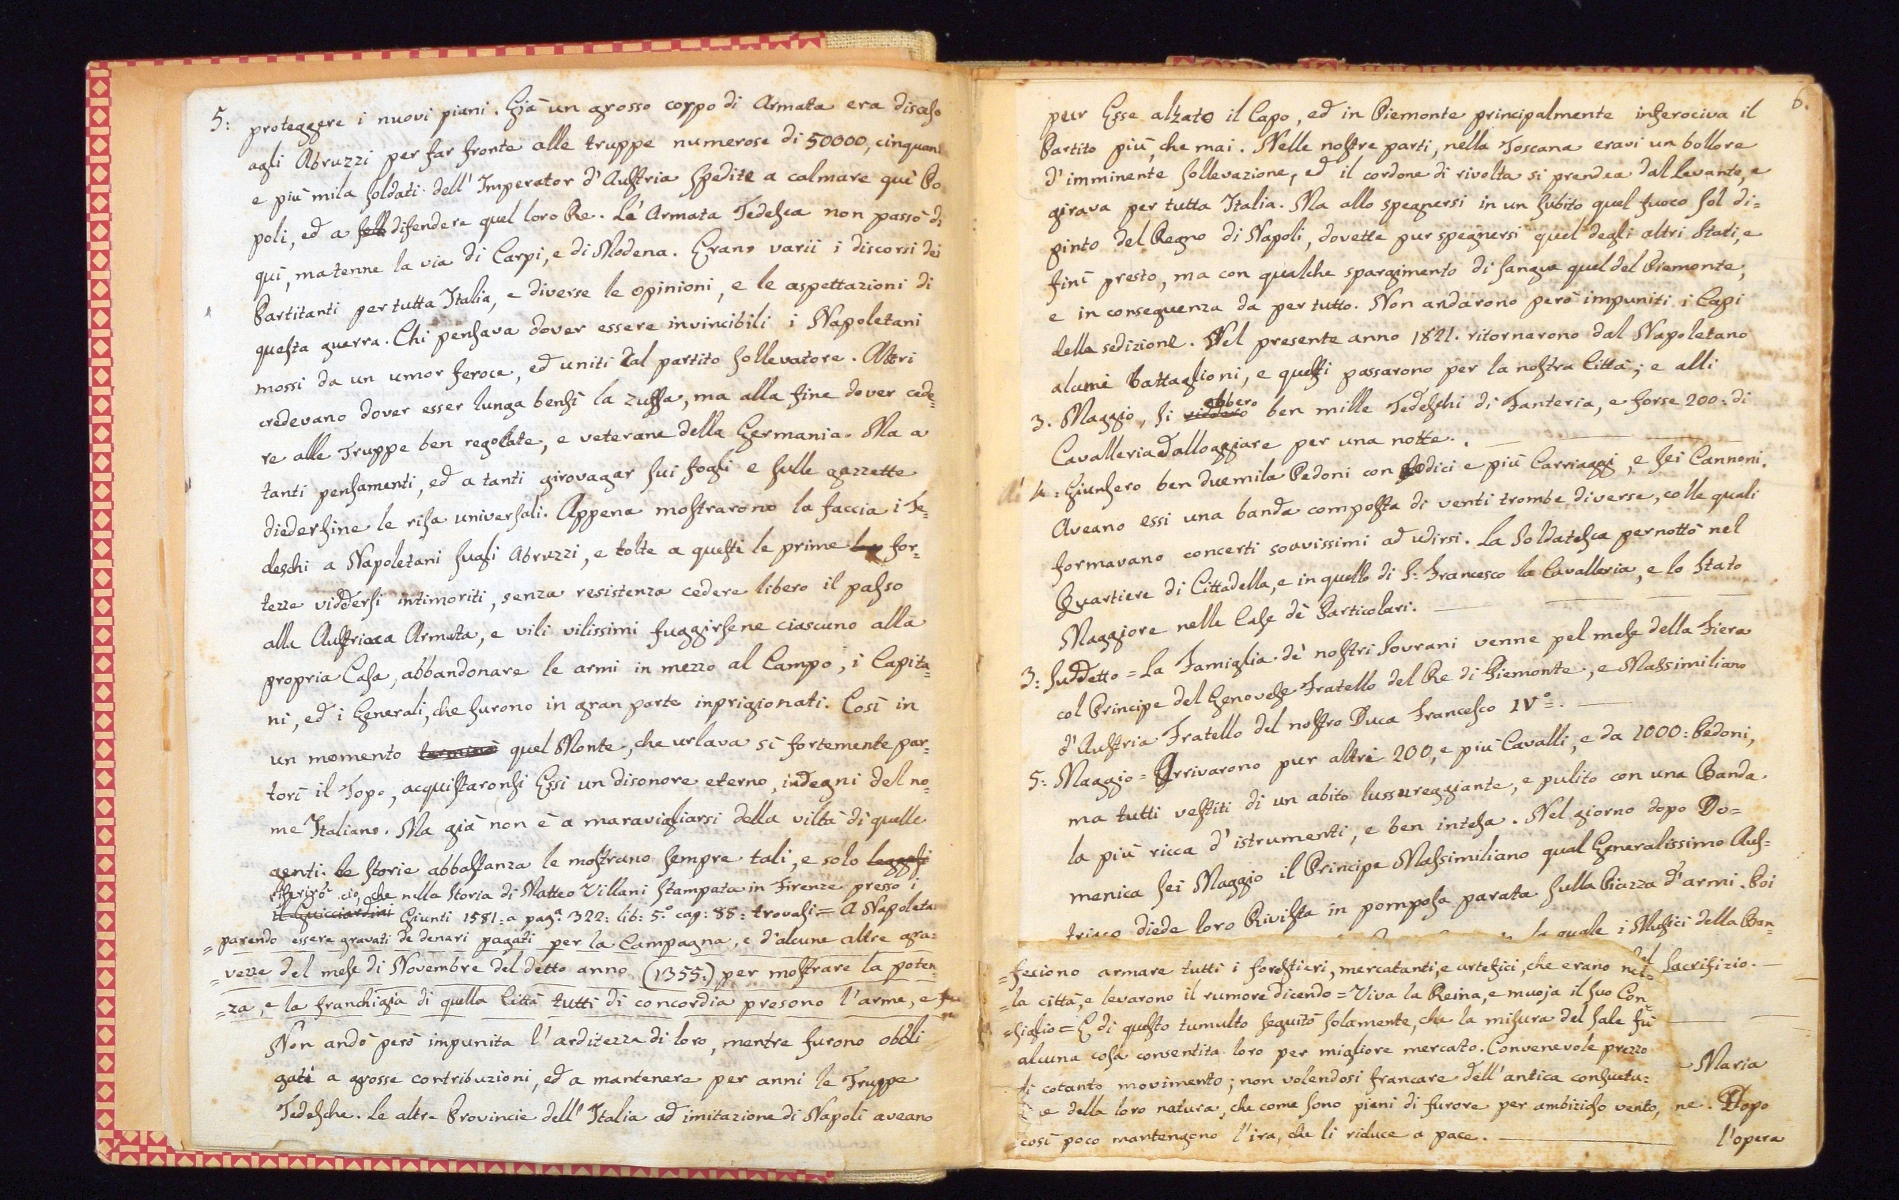 5: proteggere i nuovi piani. Già un grosso corpo di Armata era disceso
agli Abruzzi per far fronte alle truppe numerose di 50000, cinquan
e più mila soldati dell'Imperator d'Austria spedite a calmare que' Po
poli, ed a difendere quel loro Re. Le Armata Tedesca non passò di
quì, ma tenne la via di Carpi, e di Modena. Erano varii i discorsi dei
Partitanti per tutta Italia, e diverse le opinioni, e le aspettazioni di
questa guerra. Chi pensava dover essere invincibili i Napoletani
mossi da un umor feroce, ed uniti dal partito sollevatore. Altri
credevano dover esser lunga bensì la zuffa, ma alla fine dover cede=
re alle Truppe ben regolate, e veterane della Germania. Ma a
tanti pensamenti, ed a tanti girovagar sui fogli e sulle gazzette
diedersine le risa universali. Appena mostrarono la faccia i Te=
deschi a Napoletani sugli Abruzzi, e tolte a questi le prime for=
tezze viddersi intimoriti, senza resistenza cedere libero il passo
alla Austriaca Armata, e vili vilissimi fuggirsene ciascuno alla
propria Casa, abbandonare le armi in mezzo al Campo, i Capita=
ni, ed i Generali, che furono in gran parte inprigionati. Così in
un momento terminò quel Monte, che urlava sì fortemente par=
torì il Topo, acquistaronsi Essi un disonore eterno, indegni del no=
me Italiano. Ma già non è a maravigliarsi della viltà di quelle
genti. Le storie abbastanza le mostrano sempre tali, e solo leggasi
riferirò ciò, che nella Storia di Matteo Villani stampata in Firenze presso i
il Guicciardini Giunti 1581: a pag.ª 322: lib: 5.º cap: 88: trovasi = A Napoleta
= parendo essere gravati de denari pagati per la Campagna, e d'alcune altre gra=
= vezze del mese di Novembre del detto anno (1355:) per mostrare la poten
= za, e la franchigia di quella Città tutti di concordia presono l'arme, e
Non andò però impunita l'arditezza di loro, mentre furono obbli
gati a grosse contribuzioni, ed a mantenere per anni le Truppe
Tedesche. Le altre Provincie dell'Italia ad imitazione di Napoli aveano
6.
pur Esse alzato il Capo, ed in Piemonte principalmente inferociva il
Partito più, che mai. Nelle nostre parti, nella Toscana eravi un bollore
d'imminente sollevazione, ed il cordone di rivolta si prendea dal levante, e
girava per tutta Italia. Ma allo spegnersi in un subito quel fuoco sol di=
pinto del Regno di Napoli, dovette pur spegnersi quel degli altri Stati, e
finì presto, ma con qualche spargimento di sangue quel del Piemonte,
e in conseguenza da per tutto. Non andarono però impuniti i Capi
della sedizione. Nel presente anno 1821. ritornarono dal Napoletano
alcuni Battaglioni, e questi passarono per la nostra Città; e alli
3. Maggio, si viddero ebbero ben mille Tedeschi di Fanteria, e forse 200: di
Cavalleria d'alloggiare per una notte.
di 4: Giunsero ben duemila Pedoni con sedici e più Carriaggi, e sei Cannoni.
Aveano essi una banda composta di venti trombe diverse, colle quali
formavano concerti soavissimi ad udirsi. La Soldatesca pernottò nel
Quartiere di Cittadella, e in quello di S: Francesco la Cavalleria, e lo Stato
Maggiore nelle Case de' Particolari.
3: Suddetto = La Famiglia de' nostri Sovrani venne pel mese della Fiera
col Principe del Genovese Fratello del Re di Piemonte, e Massimiliano
d'Austria Fratello del nostro Duca Francesco IVº.
5: Maggio = Arrivarono pur altri 200, e più Cavalli, e da 2000: Pedoni,
ma tutti vestiti di un abito lussureggiante, e pulito con una Banda
la più ricca d'istrumenti, e ben intesa. Nel giorno dopo Do=
menica sei Maggio il Principe Massimiliano qual Generalissimo Aus=
triaco diede loro Rivista in pomposa parata sulla Piazza d'armi. Poi
la quale i Musici della Ban=
= feciono armare tutti i forestieri, mercatanti, e artefici, che erano nel
= la città, e levarono il rumore dicendo = Viva la Reina, e muoja il suo Con
= siglio = E di questo tumulto seguitò solamente, che la misura del sale fù
alcuna cosa consentita loro per migliore mercato. Convenevole prezzo
di cotanto movimento; non volendosi francare dell'antica consuetu=
e della loro natura, che come sono pieni di furore per ambizioso vento,
così poco mantengono l'ira, che li riduce a pace.
Sacrifizio.
Maria
ne. Dopo
l'opera